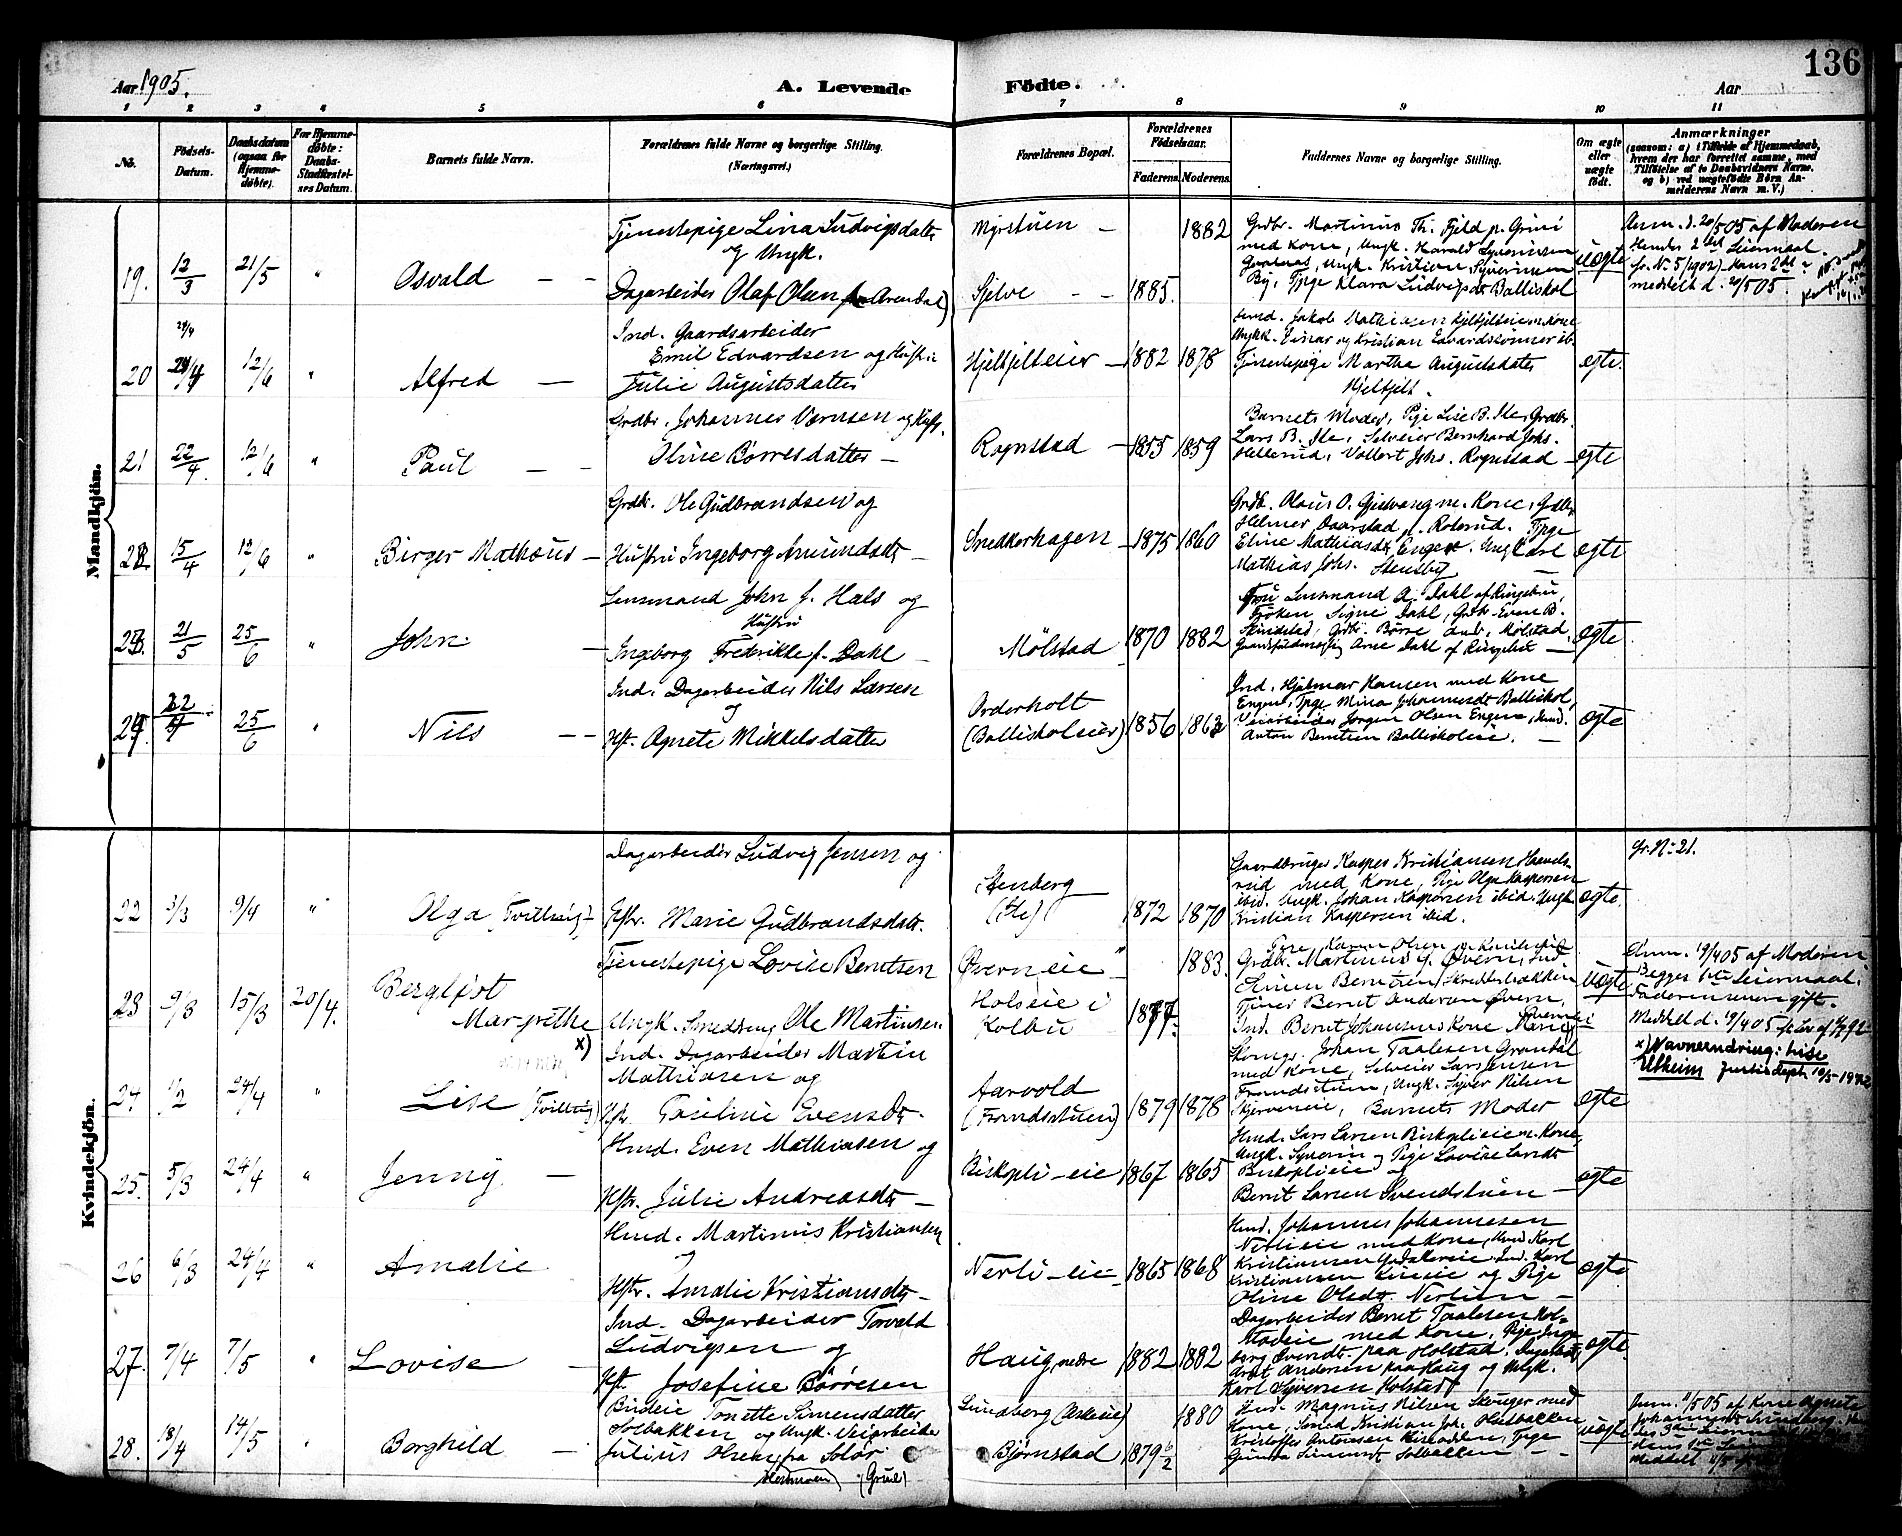 136
Aar 1905. A. Levende Fødte. Aar
1 2 3 4 5 6 7 8 9 10 11
No. Fødsels-Datum. Daabsdatum (ogsaa for Hjemme-døbte). For Hjemme-døbte: Daabs-Stadfæstel-ses Datum. Barnets fulde Navn. Forældrenes fulde Navne og borgerlige Stilling. (Næringsvei.) Forældrenes Bopæl. Forældrenes Fødselsaar. Faderens. Moderens. Faddernes Navne og borgerlige Stilling. Om ægte eller uægte født. Anmærkninger (saasom: a) i Tilfælde af Hjemmedaab, hvem der har forrettet samme, med Tilføielse af to Daabsvidners Navne, og b) ved uægtefødte Børn An-melderens Navn m. V.)
Mandkjön.
19. 12/3 21/5 " Osvald
Tjenestepige Lina Ludvigsdatter
og Ungk.
Dagarbeider Olaf Olsen fra Arendal)
Myrstuen 1882
Sjelve 1885.
Grdbr. Martinus Th. Fjeld p. Grini
med Kone, Ungk. Harald Syversen
Ungk. Kristian Syversen
By, Tpge Klara Ludvigsdt Balliskol
uægte
Anm. d. 20/5 05 af Moderen
Hendes 2det Leiermaal
fr. No 5/1902) Hans 2det
meddelt d. 20/5 05.
20 24/4 12/6 " Alfred
Ind. Gaardsarbeider
Emil Edvardsen og Hustru
Julie Augustsdatter
Hjeltjelteier 1882 1878
Jakob Mathiesen Hjeltjelteie m. Kone
Ungk. Einar og Kristian Edvardsønner ib.
Tjenestepige Martha Augustsdatter
Hjeltjelt.
ægte.
21 22/4. 12/6 " Paul
Grdbr. JohannesVærnsen og Hust.
Oline Børresdatter
Rognstad 1855 1859
Barnets Moder, Pige Lise B. Ile, Grdbr.
Lars B. Ile, Selveier Bernhard Johs.
Hellerud, Vollert Johs. Rognstad
ægte
22. 15/4 12/6 " Birger Mathæus
Grdbr. Ole Gudbrandsen og
Hustru Ingeborg Amundsdtr
Snedkerhagen 1875 1860
Grdb. Olaus O. Gjestvang m. Kone, Gdbr
Helmer Daarstad f. Roterud. Tpge
Eline Mathiasdt Enger. Ungkarl
Mathias Johs. Stensby
ægte
23. 21/5 25/6 " John.
Lensmand John J. Hals og
Hustru
Ingeborg Frederikke f. Dahl
Mølstad 1870 1882
Fru Lensmand A. Dahl af Ringebu,
Frøken Signe Dahl, Grdb. Even B.
Skindstad, Grdbr. Børre And. Mølstad,
Gaardsfuldmægtig Arne Dahl af Ringebu
ægte
24. 22/4 25/6 " Nils
Ind. Dagarbeider Nils Larsen
og
Hst. Agnete Mikkelsdatter
Orderholt
(Balliskoleier) 1856 1863
Ind. Hjalmar Hansen med Kone
Engen, Tpge Mina Johannesdt Balliskol,
Veiarbeider Jørgen Olsen Engen, Hmd.
Anton Berntsen Balliskoleie.
ægte
Kvindekjön.
22 3/3 9/4 " Olga Tvilling
Dagarbeider Ludvig Jensen og
Hstr. Marie Gudbrandsdatt.
Stenberg
(Ile) 1872 1870
Gaardbruger Kasper Kristiansen Haavels-
rud med Kone, Pige Olga Kaspersen
ibid. Ungk. Johan Kaspersen ibid. Ungk
Kristian Kaspersen ibid.
ægte.
fr. No 21.
23 9/3 15/3 20/4. Bergljot
Margrethe
Tjenestepige Lovise Berntsen
Ungk. Smedsvend Ole Martinsen
Øverneie 1883.
Holseie i
Kolbu 1877.
Tpge Karen Olsen
Grdbr. Martinus J. Øvern, Ind
Simen Berntsen Skredderbakken
Tjener Bernt Andersen Øvern,
Ind. Bernt Johansens Kone Marie
uægte
Anm. 19/4 05 af Moderen
Begges 1ste Leiermaal.
Faderen uden gift.
Meddelt d. 19/4 05
24. 1/2 24/4 " Lise x) (Tvilling)
Ind. Dagarbeider Martin
Mathiasen og
Hst. Pauline Evensdt.
Aarvold
(Frandsstuen) 1879 1878
Skomgr. Johan Paalesen Grandal
med Kone, Selveier Lars Jensen
Frandsstuen, Ungk. Syver Nilsen
Skjerveneie, Barnets Moder
ægte
x) Navneendring: Lise
Utheim justisdept. 10/5-1942
25. 5/3 24/4 " Jenny
Hmd. Even Mathiasen og
Hstr. Julie Andreasdt
Biskopli-eie 1867 1865
Hmd. Lars Larsen Biskoplieie m. Kone,
Ungk. Syverin og Pige Lovise Larsdt
Biskoplieie og
Bernt Larsen Svendstuen
ægte
26 6/3 24/4 " Amalie
Hmd. Martinus Kristiansen
og
Hstr. Amalie Kristiansdt
Nerli-eie 1865 1868
Hmd. Johannes Johannesen
Nerlieie med Kone, Hmd Karl
Kristiansen Ind. Karl
Kristiansen Lineie og Pige
Oline Olsdt. Nerlien
ægte
27. 7/4 7/5 " Lovise
Ind. Dagarbeider Torvald
Ludvigsen og
Hst. Josefine Børresen
Haug nedre 1882 1882
Dagarbeider Bernt Paalesen Hol-
stadeie med Kone, Pige Inge-
borg Evendt. paa Holstad, Dagarbeider
Andersen paa Haug og Ungk.
Karl Syversen Holstad
ægte.
28. 18/4 14/5 " Borghild
Budeie Tonette Simensdatter
Solbakken og Ungk. Veiarbeider
Julius Olsen fra Solør
(Grue)
Lundberg 1880
Bjørnstad 1879 6/2
Hmd. Magnus Nilsen Skouger med
Kone, Smed Kristian Joh. Hulbakken
Kristoffer Antonsen Tpge
Gunda Simensdt Solbakken
uægte
Anm. 11/5 05 af Kone Agnete
Johannesdt Lundberg.
meddelt 11/5